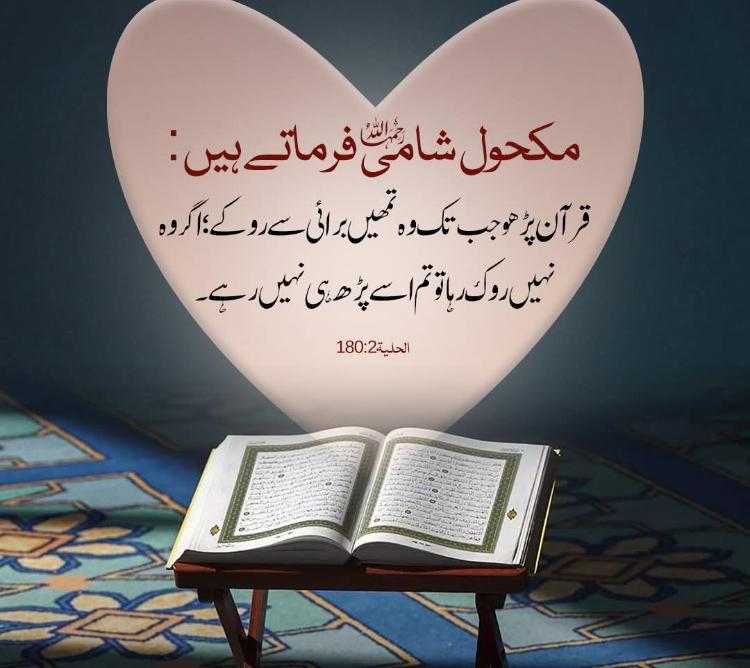 مکحول شامی رحمہ اللہ فرماتے ہیں:
قرآن پڑھو جب تک وہ تمھیں برائی سے روکے؛ اگر وہ
نہیں روک رہا تو تم اسے پڑھ ہی نہیں رہے۔
الحلیة 180:2